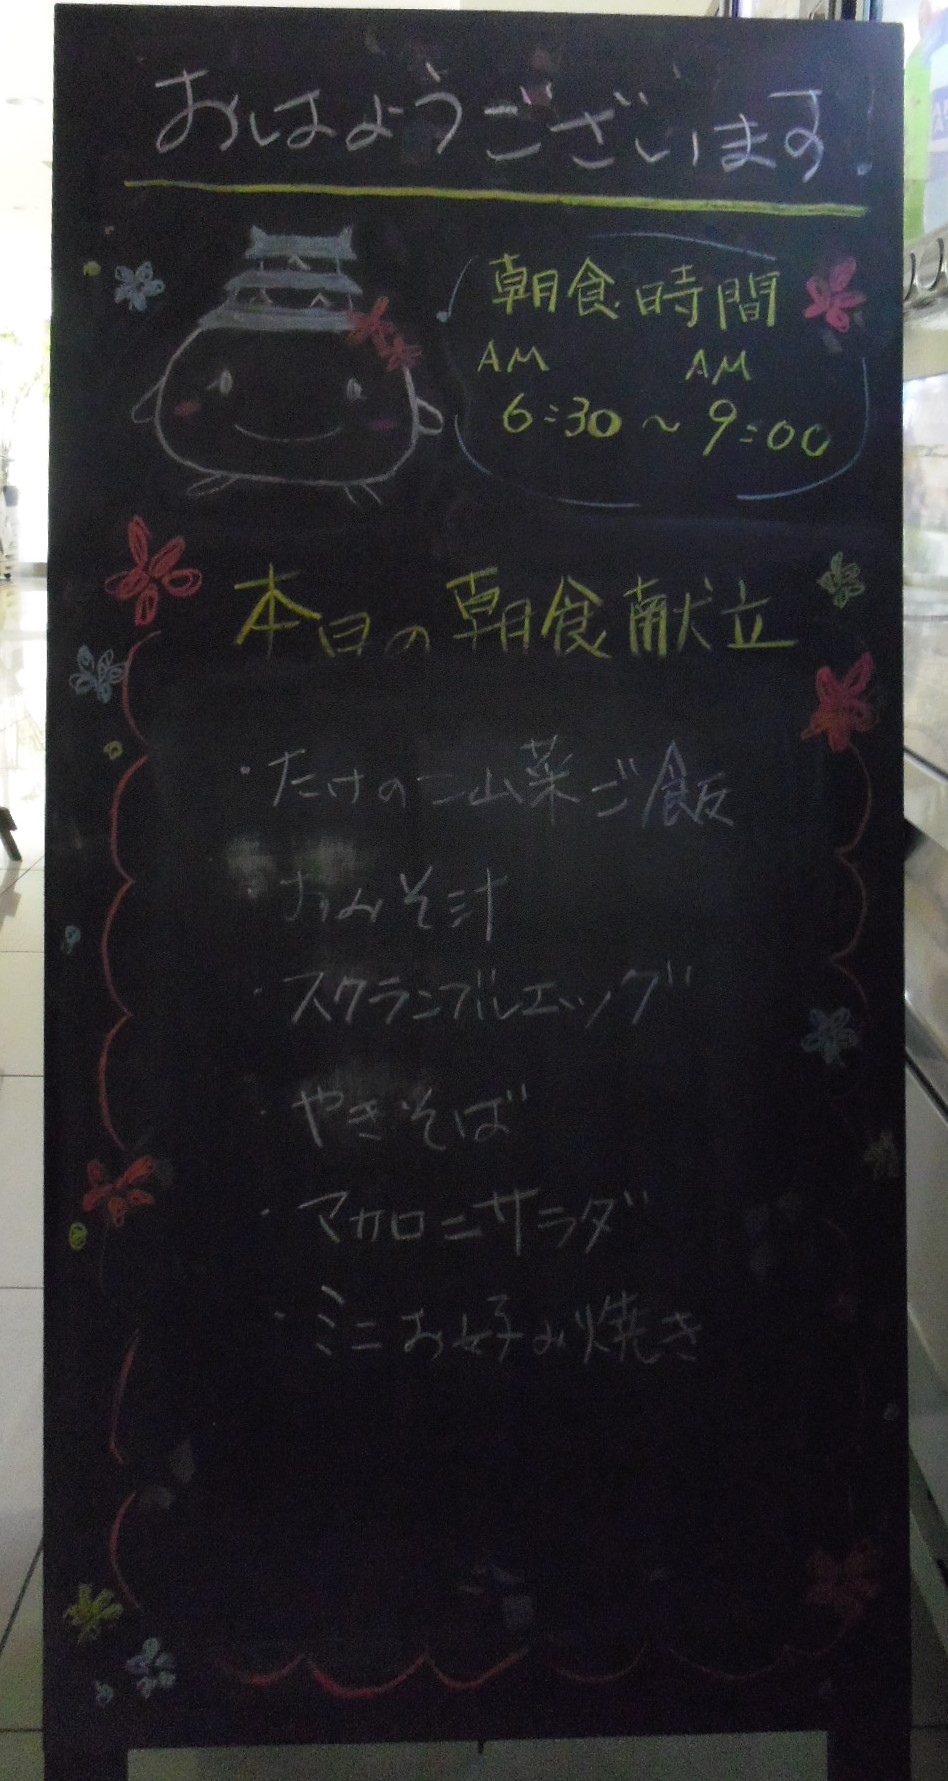 おはようございます♪
朝食時間
AM AM
6:30～9:00
本日の朝食献立
・たけのこ山菜ご飯
・おみそ汁
・スクランブルエッグ
・やきそば
・マカロニサラダ
・ミニお好み焼き